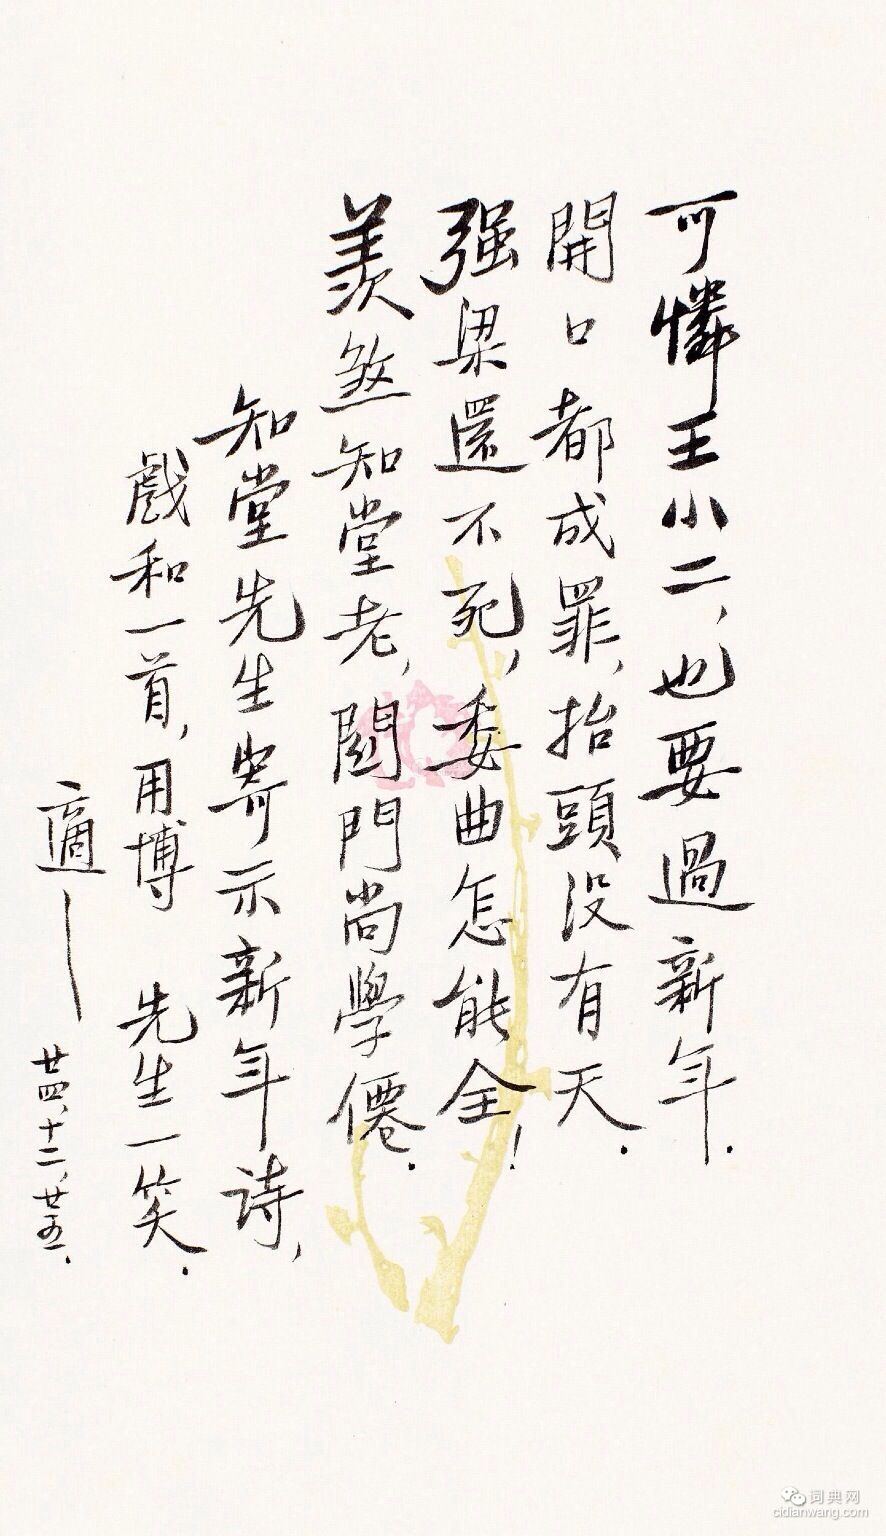 可憐王小二，也要過新年．
開口都成罪，抬頭没有天．
强梁還不死，委曲怎能全！
羨煞知堂老，閉門尚學僊．
知堂先生寄示新年诗，
戲和一首，用博　先生一笑．
適
廿四、十二、廿五．
词典网
cidianwang.com